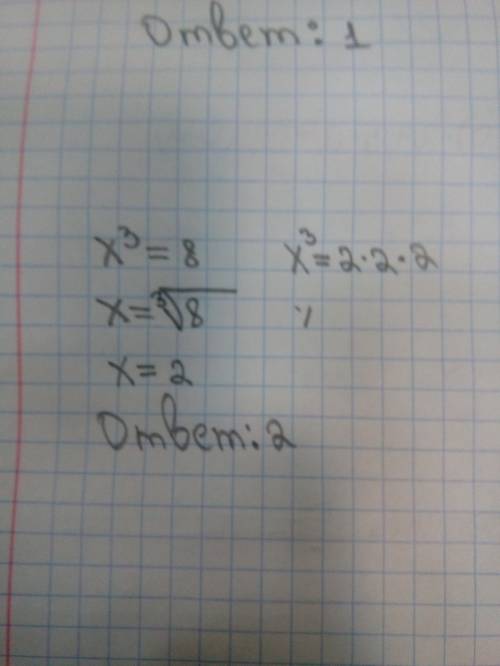 Ответ: 1
x³ = 8 x³ = 2·2·2
x = ∛8
x = 2
Ответ: 2